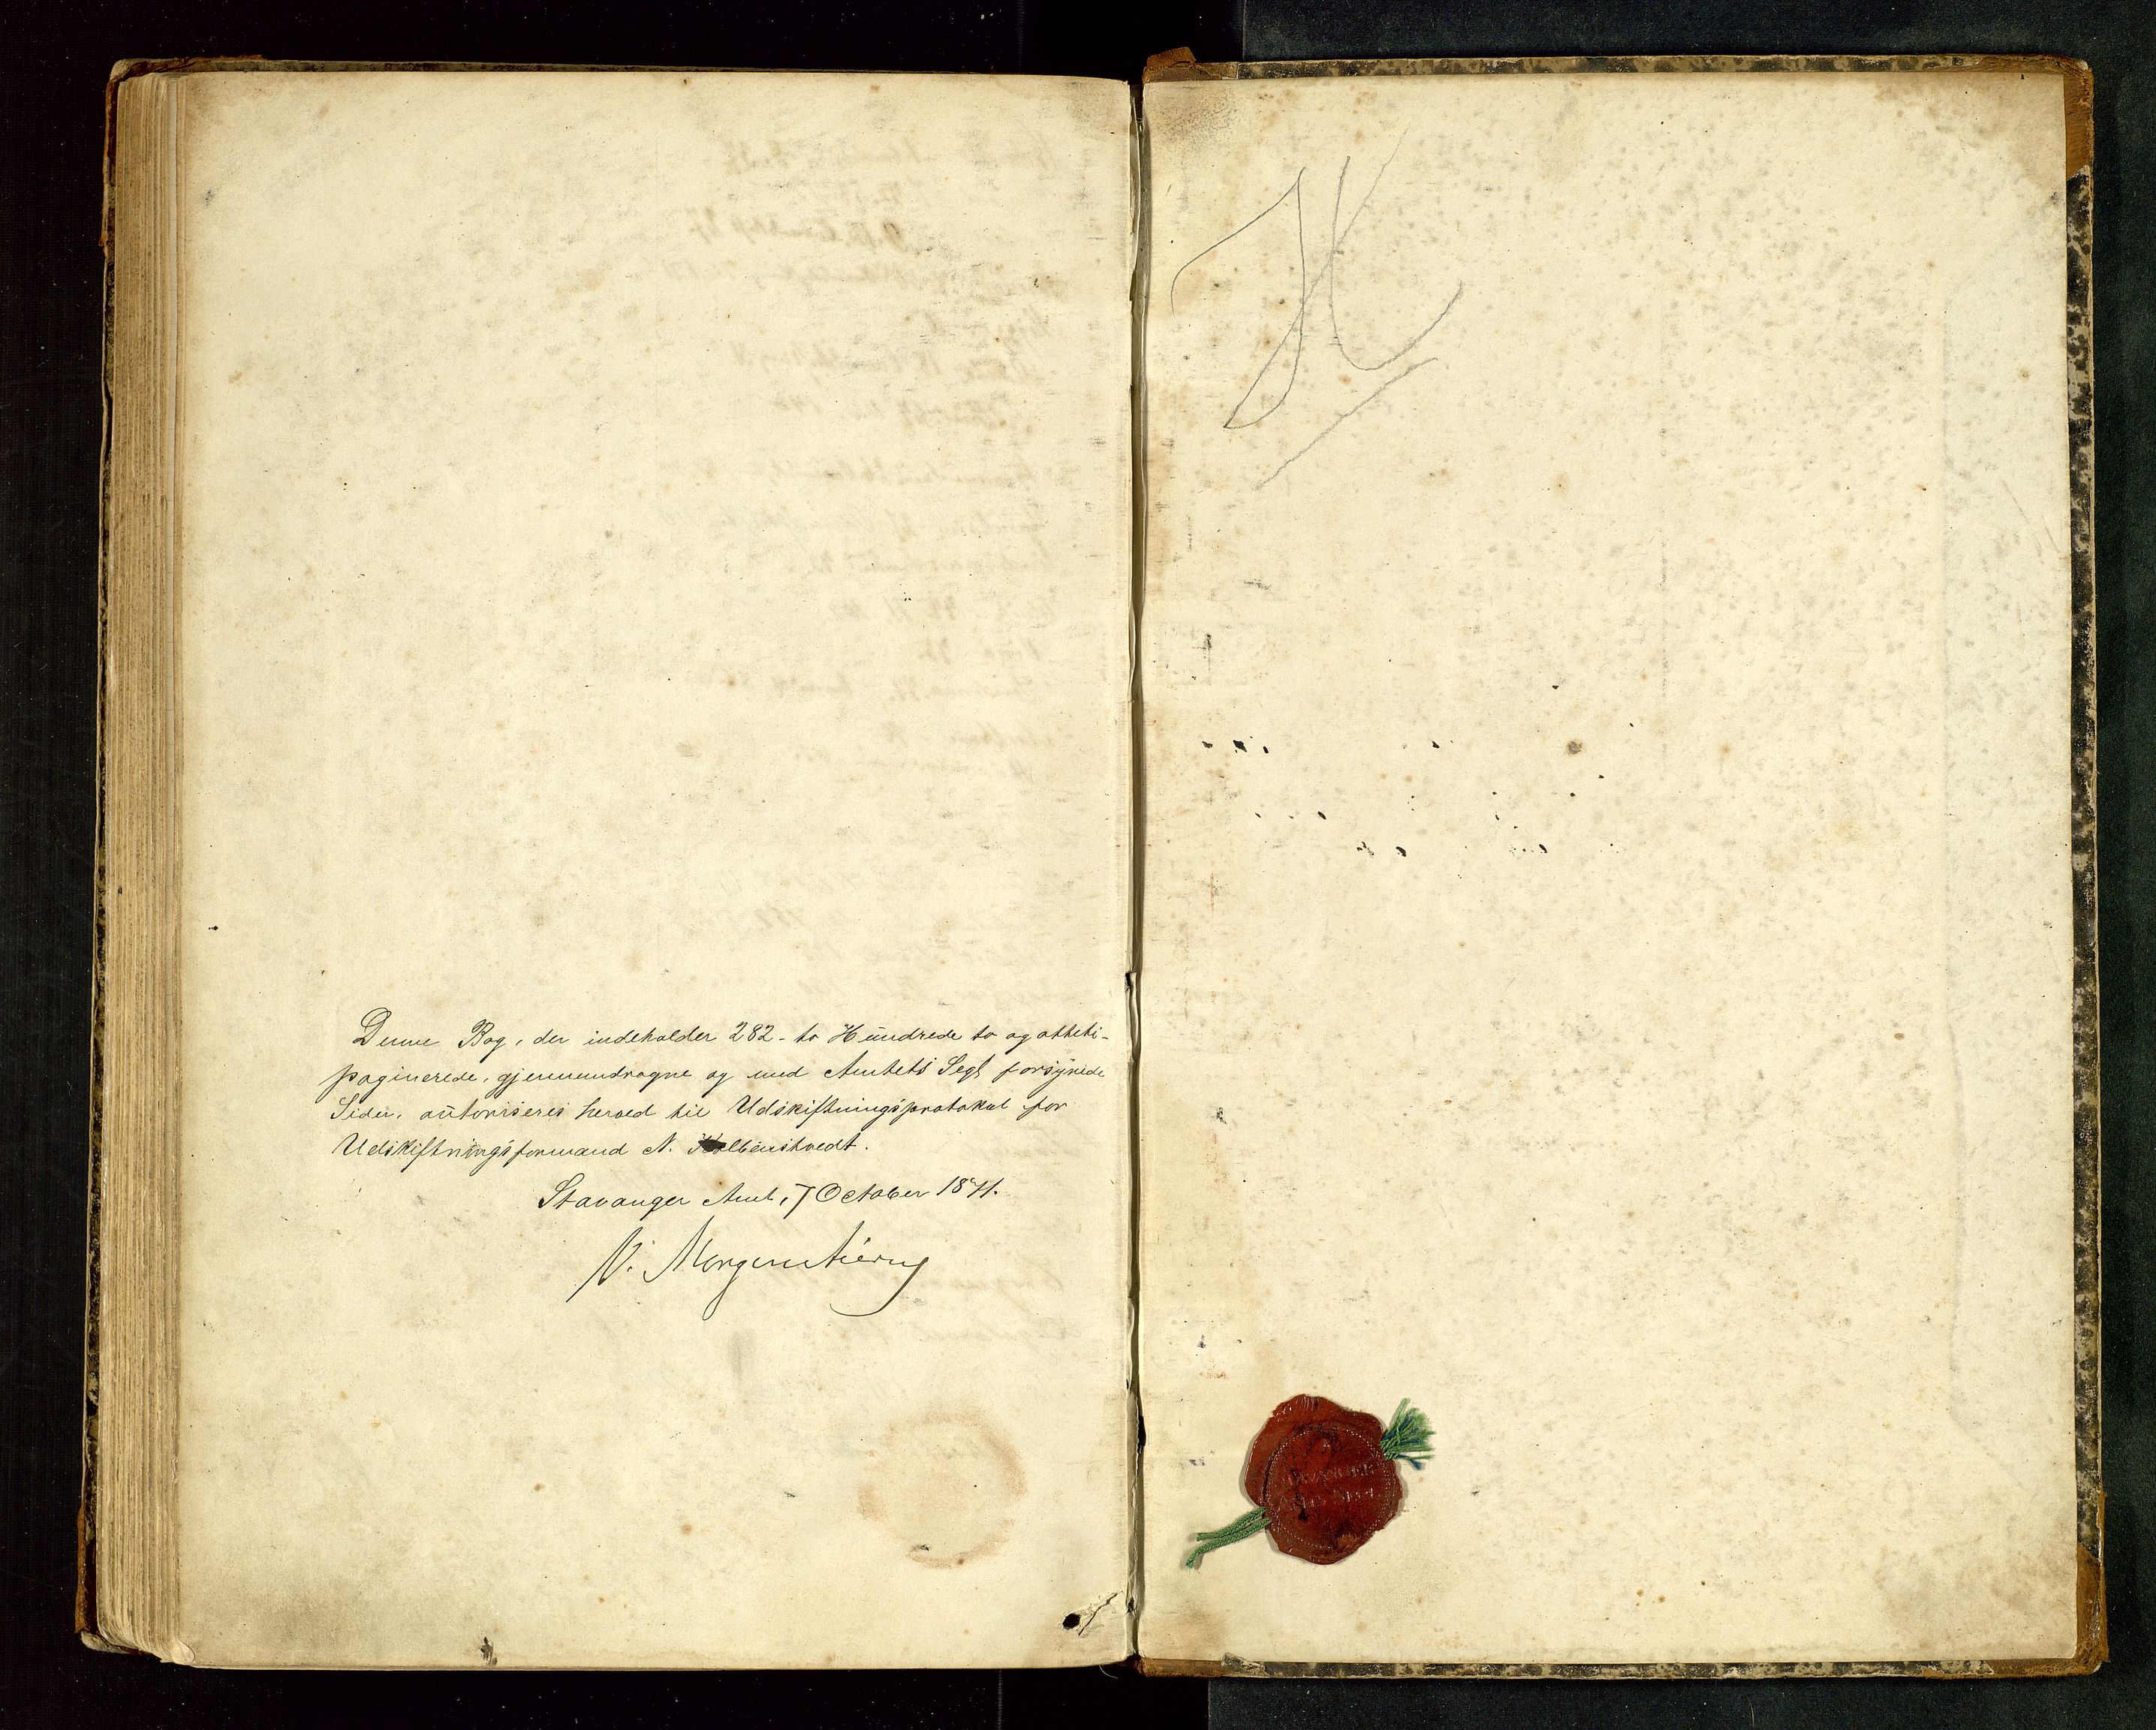 Denne Bog, der indeholder 282 - to Hundrede to og otteti -
paginerede, gjennemdragne og med Amtets Segl forsynede
Sider, autoriseres herved til Udskiftningsprotokol for
Udskiftningsformand N.
Stavanger Amt, 7 October 1871.
V. Morgenstierne